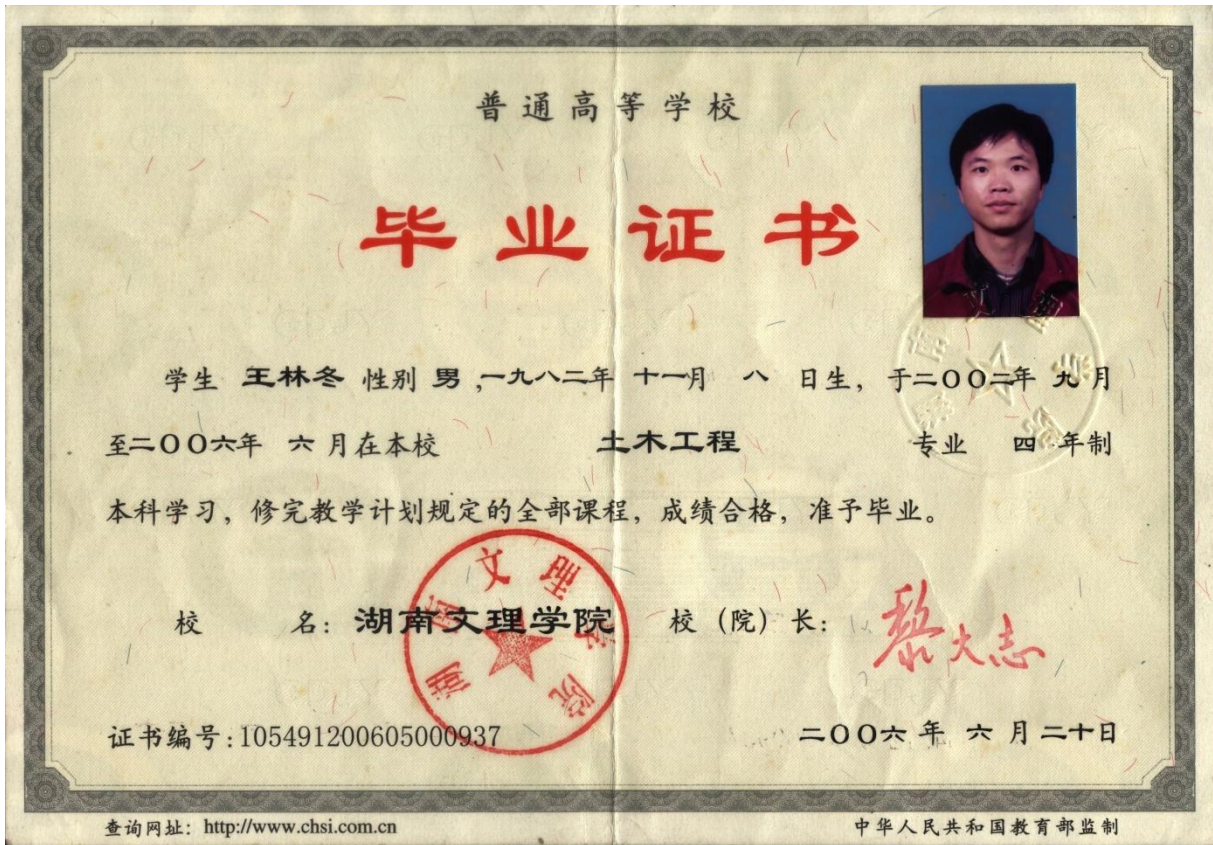 普通高等学校
毕业证书
学生 王林冬 性别 男 ,一九八二年 十一月 八 日生，于二〇〇二年 九月
至二〇〇六年 六月在本校 土木工程 专业 四 年制
本科学习，修完教学计划规定的全部课程，成绩合格，准予毕业。
校 名：湖南文理学院 校（院）长：黎大志
湖南文理学院
证书编号:105491200605000937 二〇〇六年 六月二十日
查询网址：http://www.chsi.com.cn 中华人民共和国教育部监制